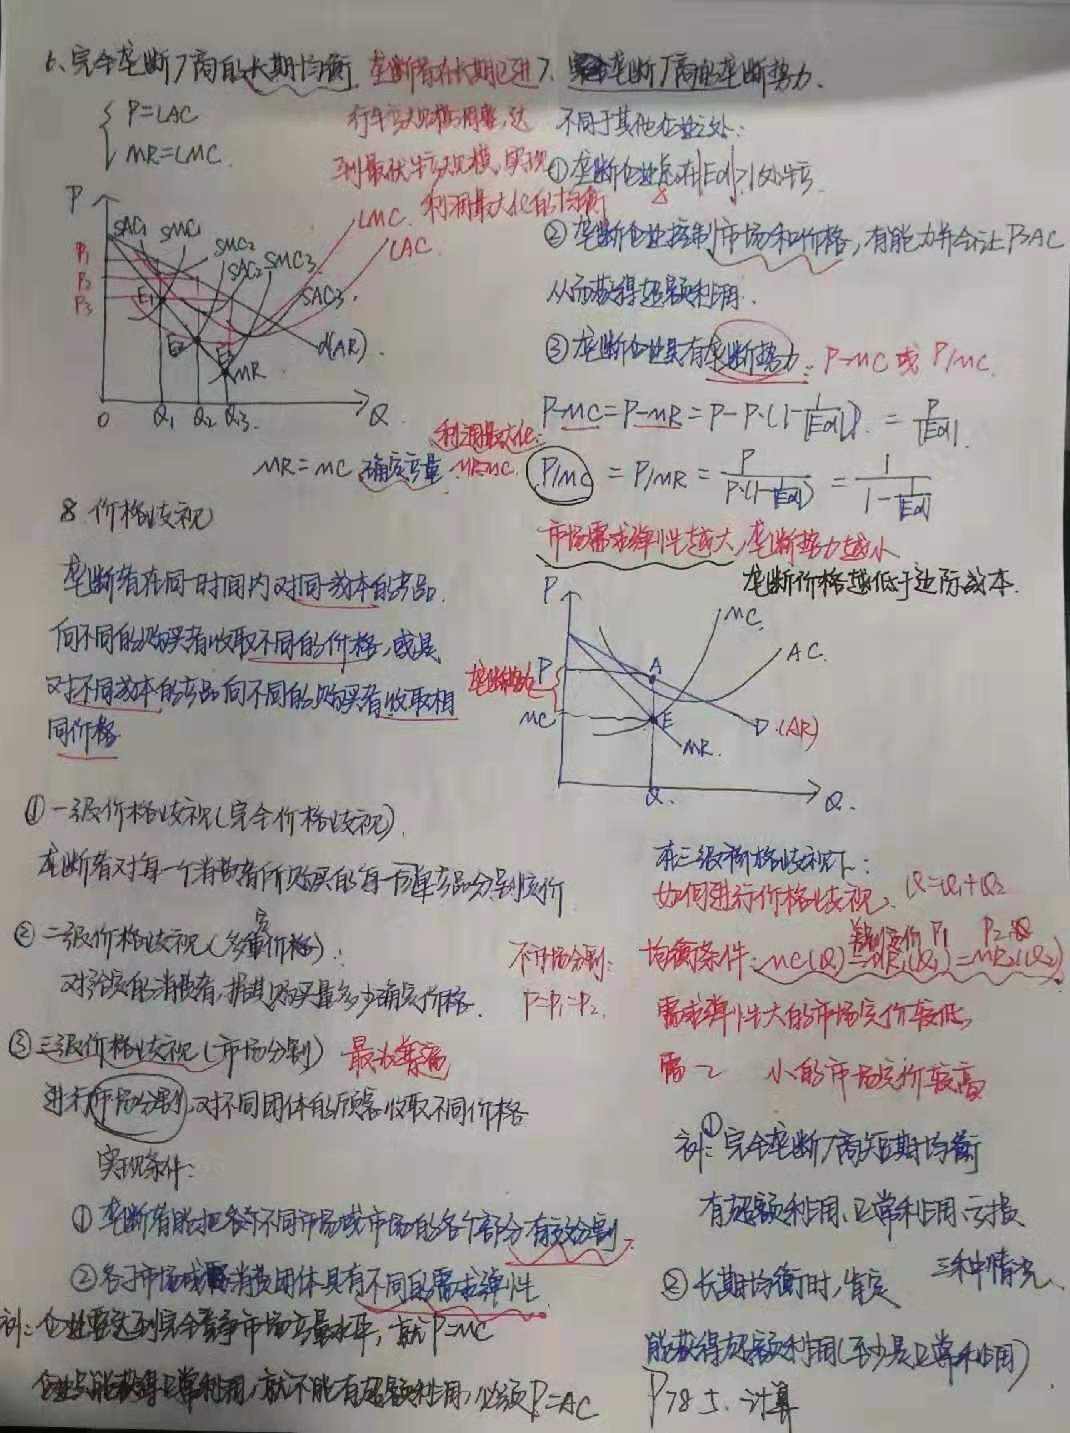 6、完全垄断厂商的长期均衡
垄断者在长期已进
行生产规模调整,达
到最优生产规模,实现
利润最大化的均衡
P=LAC
MR=LMC.
P
SAC1 SMC1 SMC2 SAC2 SMC3 LMC. LAC
P1
P2
P3
E1
SAC3.
E2
E3
d(AR)
MR
O Q1 Q2 Q3. Q
MR=MC 确定产量
利润最大化:
MR=MC.
8、价格歧视
垄断者在同一时间内对同一成本的产品
向不同的购买者收取不同的价格,或是
对不同成本的产品向不同的购买者收取相
同价格
①一级价格歧视(完全价格歧视)
垄断者对每一个消费者所购买的每一单产品分别定价
②二级价格歧视(多重定价):
对给定的消费者,据其购买量多少确定价格.
③三级价格歧视(市场分割) 最为普遍
进行市场分割,对不同团体的顾客收取不同价格
实现条件:
①垄断者能把各个不同市场或市场的各个部分有效分割.
②各子市场或消费团体具有不同的需求弹性
例:企业要达到完全竞争市场产量水平,就P=MC
企业只能获得正常利润,就不能有超额利润,必须P=AC
7、完全垄断厂商的垄断势力.
不同于其他企业之处:
①垄断企业总在|Ed|>1处生产
②垄断企业控制市场和价格,有能力并会让P>AC
从而获得超额利润.
③垄断企业具有垄断势力: P-MC 或 P/MC.
P-MC=P-MR=P-P·(1-1/|Ed|) = P/|Ed|.
P/MC = P/MR = P/P·(1-1/|Ed|) = 1/1-1/|Ed|
市场需求弹性越大,垄断势力越小
垄断价格越低于边际成本.
P
MC
AC.
P
A
垄断势力
MC
E
D (AR)
MR.
Q. Q.
在三级价格歧视下:
如何进行价格歧视、 Q=Q1+Q2
差别定价 P1 P2
不市场分割: 均衡条件:MC(Q)=MR1(Q1)=MR2(Q2)
P=P1=P2.
需求弹性大的市场定价较低,
需~ 小的市场定价较高
例:①完全垄断厂商短期均衡
有超额利润、正常利润、亏损
三种情况
②长期均衡时,肯定
能获得超额利润(至少是正常利润)
P78 5、计算